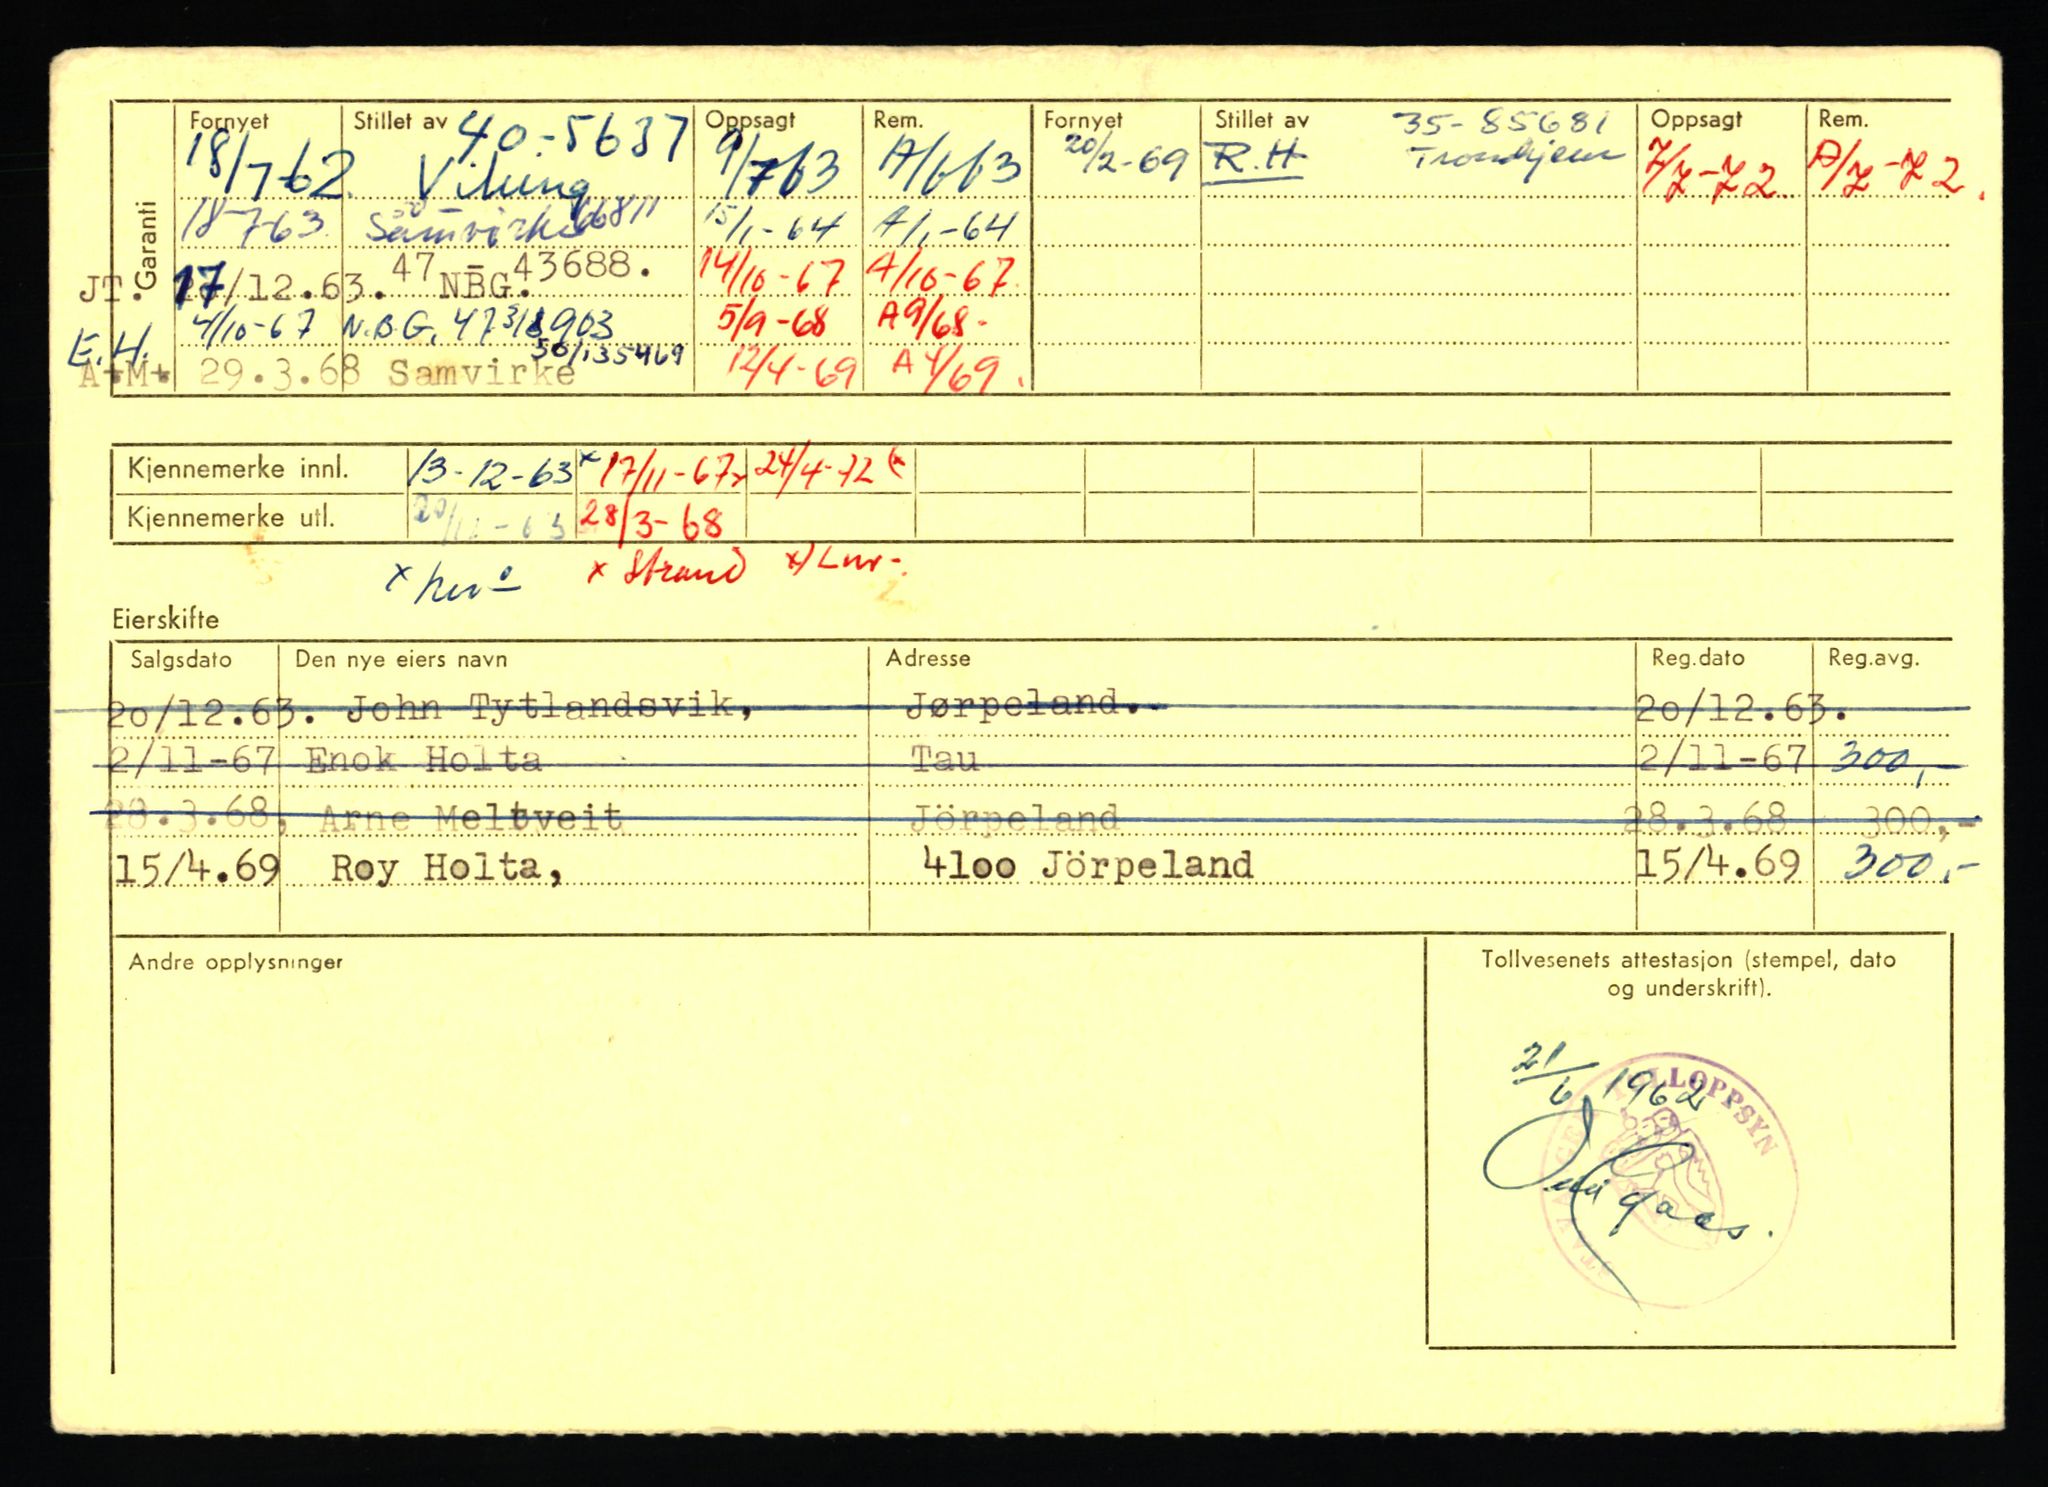 Garanti
Fornyet Stillet av Oppsagt Rem. Fornyet Stillet av Oppsagt Rem.
18/7-62. 40-5637 Viking 9/763 A/663 20/2-69 R.H 35-85681 Trondhjem 7/7-72. A/7-72.
18-7-63. Samvirke 66811 15/1-64 A/1-64
JT. 17/12.63. 47-43688. NBG. 14/10-67 A/10-67
E.H. 4/10-67 N.B.G. 47318903 5/9-68 A9/68-
A.M. 29.3.68 Samvirke 50/135469 12/4-69 A4/69.
Kjennemerke innl. 13-12-63 x 17/11-67 24/4-72
Kjennemerke utl. 20/12-63 28/3-68
x x Strand x)
Eierskifte
Salgsdato Den nye eiers navn Adresse Reg.dato Reg.avg.
20/12.63. John Tytlandsvik, Jørpeland. 20/12.63.
2/11-67 Enok Holta Tau 2/11-67 300,-
28.3.68, Arne Meltveit Jörpeland 28.3.68 300,-
15/4.69 Roy Holta, 4100 Jörpeland 15/4.69 300,-
Andre opplysninger
Tollvesenets attestasjon (stempel, dato
og underskrift).
21/6 1962
STAVANGER TOLLOPPSYN